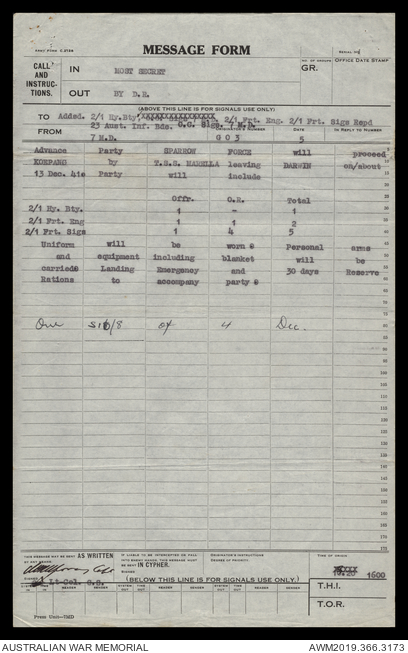 MESSAGE FORM
CALL AND INSTRUCTIONS.
IN MOST SECRET
OUT BY D.R.
GR.
OFFICE DATE STAMP
(ABOVE THIS LINE IS FOR SIGNALS USE ONLY)
TO Addsd. 2/1 Hy.Bty. 2/1 Frt. Eng. 2/1 Frt. Sigs Repd
23 Aust. Inf. Bde. C.C. Sigs. 7 M.D.
FROM ORIGINATOR'S NUMBER DATE IN REPLY TO NUMBER
7 M.D. G O 3 5
Advance Party SPARROW FORCE will proceed
KOEPANG by T.S.S. MARELLA leaving DARWIN on/about
13 Dec. 41. Party will include
Offr. O.R. Total
2/1 Hy. Bty. 1 - 1
2/1 Frt. Eng 1 1 2
2/1 Frt. Sigs 1 4 5
Uniform will be worn. Personal arms
and equipment including blanket will be
carried. Landing Emergency and 30 days Reserve
Rations to accompany party.
One of 4 Dec.
THIS MESSAGE MAY BE SENT AS WRITTEN
IF LIABLE TO BE INTERCEPTED OR FALL INTO ENEMY HANDS, THIS MESSAGE MUST BE SENT IN CIPHER.
ORIGINATOR'S INSTRUCTIONS
DEGREE OF PRIORITY.
TIME OF ORIGIN
Lt-Col. G.S.
1600
(BELOW THIS LINE IS FOR SIGNALS USE ONLY.)
T.H.I.
T.O.R.
AUSTRALIAN WAR MEMORIAL
AWM2019.366.3173